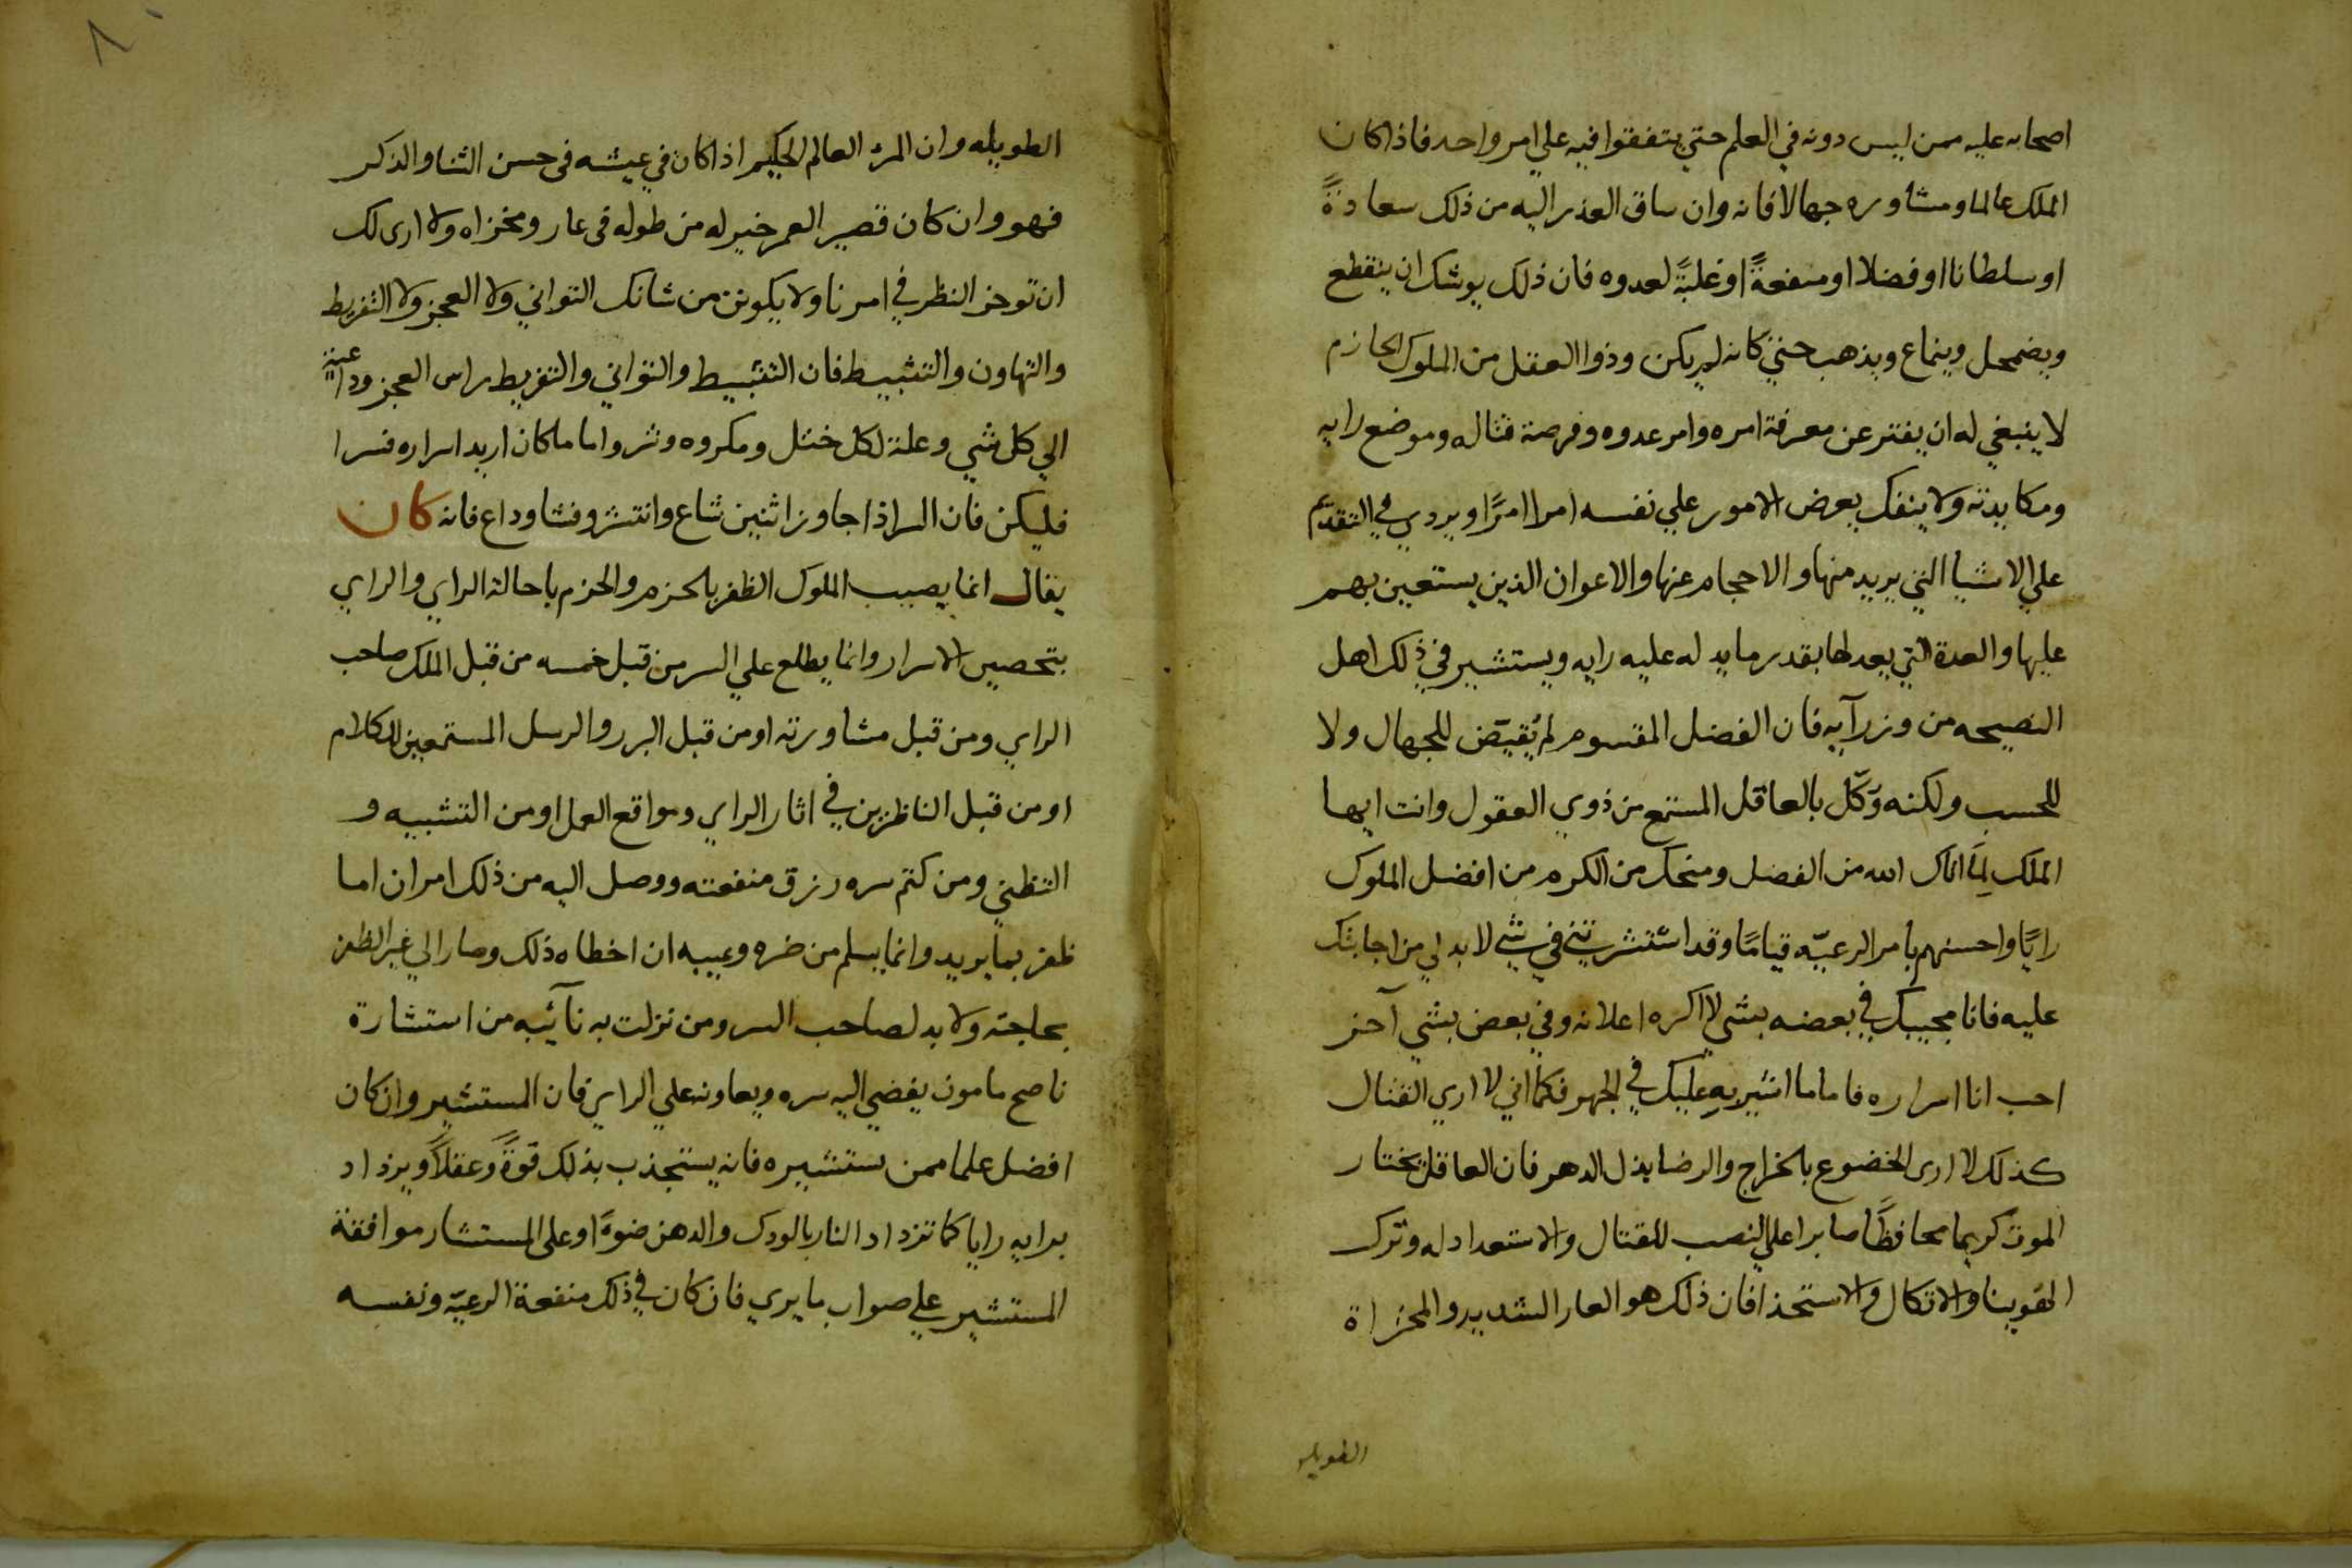 اصحابه عليه ممن ليس دونه في العلم حتي يتفقوا فيه علي امر واحد فاذا كان
الملك عالما ومشاوره جهالا فانه وان ساق العذر اليه من ذلك سعادةً
او سلطانا او فضلا او منفعةً او غلبةً لعدوه فان ذلك يوشك ان ينقطع
ويضمحل وينماع ويذهب حتي كانه لم يكن وذوا العقل من الملوك الحازم
لا ينبغي له ان يفتر عن معرفة امره وامر عدوه وفرصة قتاله وموضع رايه
ومكايدته ولا ينفك يعرض الامور علي نفسه امرا امرًا ويردي في التقدّم
علي الاشيا التي يريد منها والاحجام عنها والاعوان الذين يستعين بهم
عليها والعدة التي يعد لها بقدر ما يد له عليه رايه ويستشير في ذلك اهل
النصيحه من وزرآيه فان الفضل المقسوم لم يُقيّض للجهال ولا
للحسب ولكنه وّكّل بالعاقل المستمع من ذوي العقول وانت ايها
الملك لِمَا اتاك الله من الفضل ومنحك من الكرم من افضل الملوك
رايًا واحسنهم بامر الرعيّه قيامًا وقد استشرتني في شي لا بد لي من اجابتك
عليه فانا مجيبك في بعضه بشي لا اكره اعلانه وفي بعض بشي آخر
احب انا اسراره فاما ما اشير به عليك في الجهر فكما اني لا اري القتال
كذلك لا ارى الخضوع بالخراج والرضا بذل الدهر فان العاقل يختار
الموت كريما محافظًا صابرا علي النصب للقتال والاستعداد له وترك
الهوينا والاتكال والاستحذا فان ذلك هو العار الشديد والمخزاة
الطويله
الطويله وان المرء العالم الحكيم اذا كان في عيشه في حسن الثنا والذكر
فهو وان كان قصير العمر خير له من طوله في عار ومخزاه ولا ارى لك
ان توخر النظر في امرنا ولا يكونن من شانك التواني ولا العجز ولا التفريط
والتهاون والتثبيط فان التثبيط والتواني والتفريط راس العجز وداعية
الي كل شي وعلة لكل ختل ومكروه وشر واما ما كان اريد اسراره فسرا
فليكن فان السر اذا جاوز اثنين شاع وانتشر وفشا وداع فانه كان
يقال انما يصيب الملوك الظفر بالحزم والحزم باحالة الراي والراي
بتحصين الاسرار وانما يطلع علي السر من قبل خمسه من قبل الملك صاحب
الراي ومن قبل مشاورته او من قبل البرد والرسل المستمعين الكلام
او من قبل الناظرين في اثار الراي ومواقع العمل او من التشبيه و
التظني ومن كتم سره رزق منفعته ووصل اليه من ذلك امران اما
ظفر بما يريد وانما يسلم من ضره وعيبه ان اخطاه ذلك وصار الي غير الظفر
بحاجته ولا بد لصاحب السر ومن نزلت به نآئبه من استشارة
ناصح مامون يفضي اليه سره ويعاونه علي الراي فان المستشير وان كان
افضل علما ممن يستشيره فانه يستجذب بذلك قوةً وعقلاً ويزداد
برايه رايا كما تزداد النار بالودك والدهن ضوءً او على المستشار موافقة
المستشير علي صواب ما يري فان كان في ذلك منفعة الرعيّه ونفسه